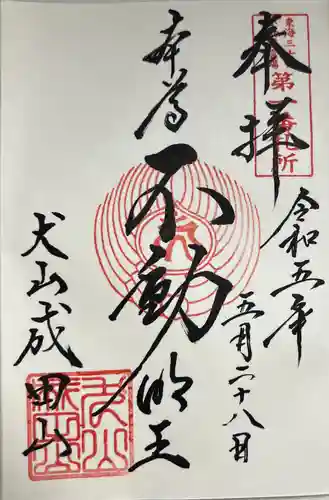 奉拝
東海三十六
第一番札所
令和五年
五月二十八日
本尊
不動明王
犬山成田山